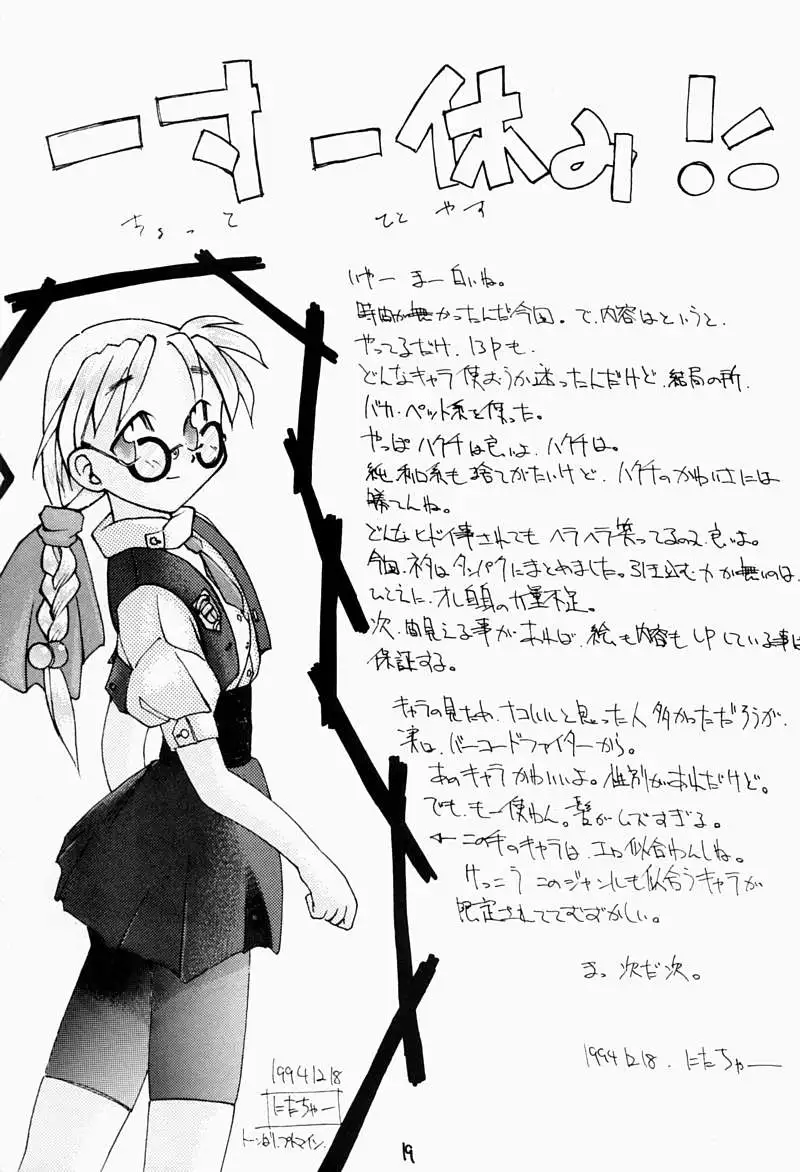 一寸一休み!!
ちょっと ひと やす
いやー まー 白いね。
時間が無かったんだ今回。で、内容はというと、
やってるだけ、13Pも、
どんなキャラ使おうか迷ったんだけど、結局の所、
バカ・ペット系を使った。
やっぱハクチは良いよ、ハクチは。
純和口系も捨てがたいけど、ハクチのかわいさには
勝てんね。
どんなヒドイ事されてもヘラヘラ笑ってるの、良いよ。
今回、ネタはタンパクにまとめました。引き込む力が無いのは、
ひとえに、オレ自身の力量不足。
次、間見える事があれば、絵も内容もUPしている事は
保証する。
キャラの見たわ、ナコいいと思った人多かっただろうが、
実は、バーコードファイターから。
あのキャラかわいいよ。性別があれだけど。
でも、もー使わん。髪がムズすぎる。
← この手のキャラは、エロ似合わんしね。
けっこうこのジャンルも似合うキャラが
限定されててむずかしい。
まっ 次だ次。
1994 12 18. にたちゃー
1994 12 18
にたちゃー
19